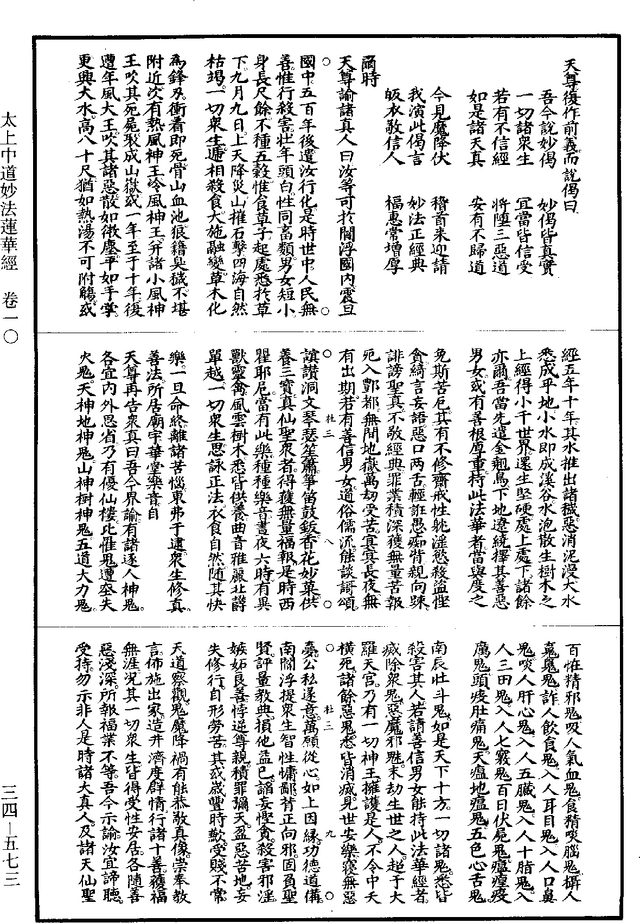 天尊復作前義而說偈曰
吾今說妙偈　妙偈皆真實
一切諸衆生　宜當皆信受
若有不信經　將墮三惡道
如是諸天真　安有不歸道
今見魔降伏　稽首來迎請
我演此偈言　妙法正經典
皈衣敬信人　福惠當增厚
爾時
天尊諭諸真人曰汝等可於閻浮國內震旦
國中五百年後遣汝行化是時世中人民無
善惟行殺害壯年頭白性同畜類男女短小
身長尺餘不種五穀惟食草子起處悉於草
下九月九日上天降災山摧石擊四海自然
枯竭一切衆生遞相殺食大施融變草木化
為鋒刃衝着即死骨山血池狼籍臭穢不堪
附近次有熱風神王冷風神王并諸小風神
王吹其死屍聚成山嶽或一年至于十年後
遭年風大王吹其諸惡散如微塵平如手掌
更興大水高八十尺猶如熱湯不可附觸或
經五年十年其水推出諸穢惡消泥漫大水
悉成平地小水即成溪谷水泡散生樹木之
上經得小千世界還生堅硬處上處下諸餘
亦爾吾當先遣金翅鳥下地遶繞擇其善惡
男女或有善根厚重持此法華者當與度之
免斯苦厄其有不修齋戒性躭淫慾殺盜慳
貪綺言妄語惡口兩舌輕誑愚痴背親向踈
誹謗聖真不敬經典罪業積深獲無量苦報
死入酆都無間地嶽萬劫受苦冥冥長夜無
有出期若有善信男女道俗儒流能談謌頌
讃洞文琴瑟笙簫箏笛鼓鈸香花妙菓供
養三寶真仙聖衆者得獲無量福報是時西
瞿耶尼當有此樂種種樂音晝夜六時有異
獸靈禽風雲樹木悉皆供養曲音雅麗北欝
單越一切衆生思詠正法衣食自然隨其快
樂一旦命終離諸苦惱東弗于逮衆生修真
善法所居廟宇華堂樂音自
天尊再告衆真曰吾今諭有諸逐人神鬼
各宜內外思省乃有優仙樓鬼遭失
火鬼天神地神鬼山神樹神鬼五道大力鬼
杜三　八
百恠精邪鬼吸人氣血鬼食精啖腦鬼
鬼詐人飲食鬼入人耳目鬼入人口鼻
鬼啖人肝心鬼入人五臟鬼入人十脂鬼入
人三田鬼入人七竅鬼百日伏屍鬼瘟瘴疫
癘鬼頭疼肚痛鬼天瘟地瘟鬼五色心舌鬼
南辰北斗鬼如是天下十方一切諸鬼悉皆
殺害其人若請善信男女能持此法華經者
滅除衆鬼惡魔邪魅末劫生世之人超于大
羅天官乃有一切神王擁護是人不令中夭
橫死諸餘惡鬼悉皆消滅見世安樂復無惡
公私遂意萬願從心如上因緣功德道備
南閻浮提衆生智性慵鄙背正向邪固負聖
賢評量教典損他益已謟妄慳貪殺害邪淫
嫉妬良善悖逆尊親積罪彌天盈惡苦地妄
失修行自形勞苦其或歲豐時歉受賤不常
天道察觀鬼魔降禍有能恭敬真像崇奉教
言佈施出家造井濟度群情行諸十善獲福
無涯究其一切衆生皆得受性安居各隨善
惡淺深所報福業不等吾今示諭汝宜諦聽
受持勿示非人是時諸大真人及諸天仙聖
杜三　九
太上中道妙法蓮華經　卷一〇
三四—五七三